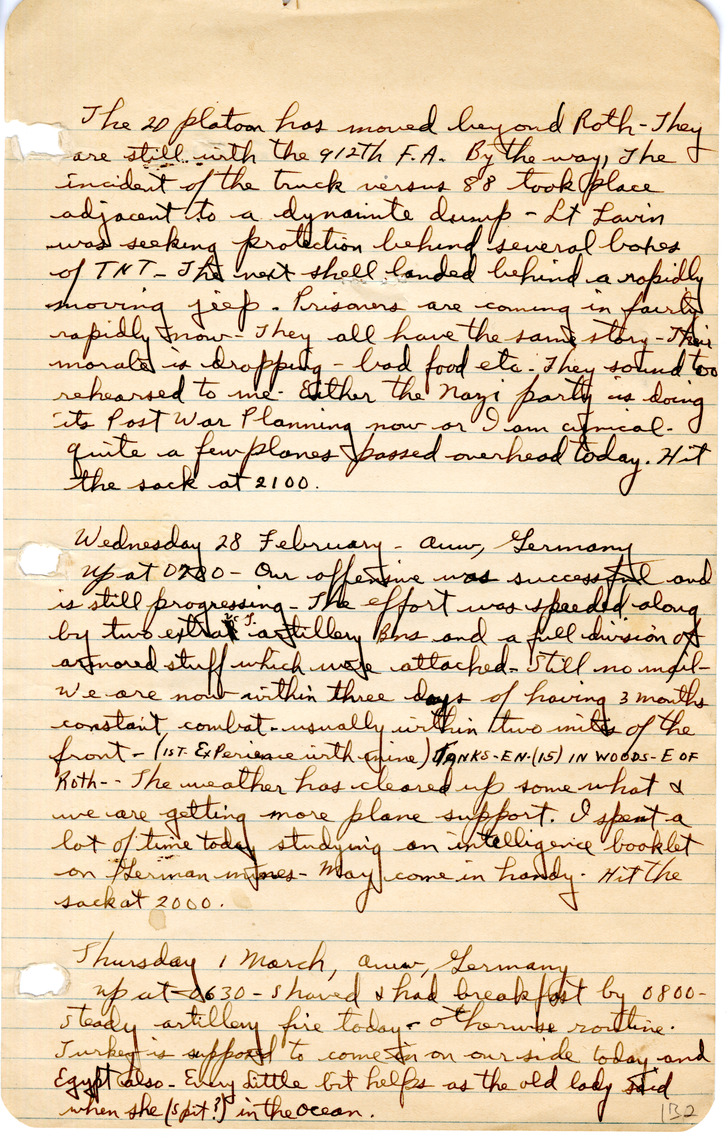 The 2D platoon has moved beyond Roth - They
are still with the 912th F.A. By the way, The
incident of the truck versus 88 took place
adjacent to a dynamite dump - Lt Lavin
was seeking protection behind several boxes
of TNT - The next shell landed behind a rapidly
moving jeep. Prisoners are coming in fairly
rapidly now - They all have the same story - Their
morale is dropping - bad food etc. They sound too
rehearsed to me. Either the Nazi party is doing
its Post War Planning now or I am cynical -
quite a few planes passed overhead today. Hit
the sack at 2100.
Wednesday 28 February - Auw, Germany
Up at - Our offensive was successful and
is still progressing - The effort was speeded along
by two extra artillery Bns and a full division of
armored stuff which were attached - Still no mail -
We are now within three days of having 3 months
constant combat - usually within two miles of the
front - (1ST. EXPerience with mine) TANKS - EN. (15) IN WOODS - E OF
Roth - - The weather has cleared up some what &
we are getting more plane support. I spent a
lot of time today studying an intelligence booklet
on German mines - May come in handy. Hit the
sack at 2000.
Thursday 1 March, Auw, Germany
Up at 0630 - Shaved & had breakfast by 0800 -
Steady artillery fire today - otherwise routine.
Turkey is supposed to come in on our side today and
Egypt also - Every little bit helps as the old lady said
when she (spit?) in the ocean.
132